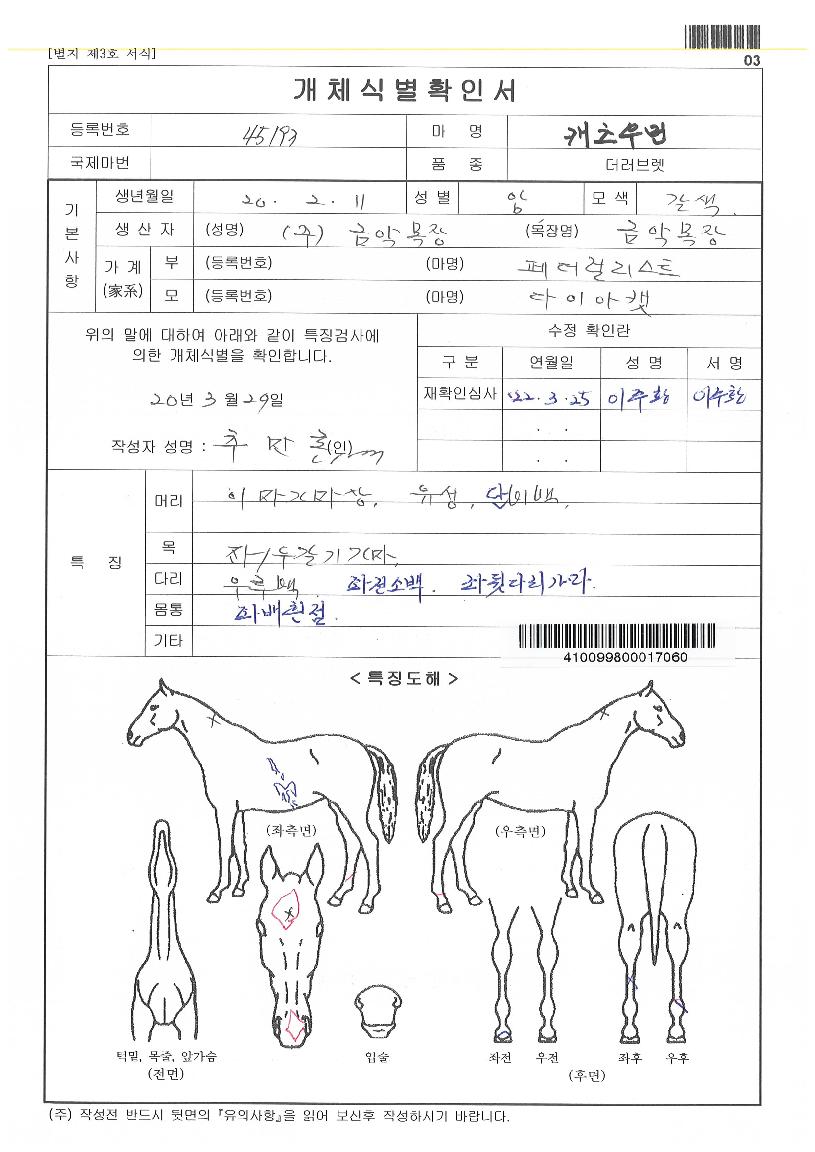 [별지 제3호 서식]
03
개체식별확인서
등록번호 45193 마 명 캐초우런
국제마번 품 종 더러브렛
기본사항
생년월일 20 . 2 . 11 성 별 암 모 색 갈색
생 산 자 (성명) (주) 금악목장 (목장명) 금악목장
가 계 (家系) 부 (등록번호) (마명) 페더럴리스트
모 (등록번호) (마명) 다이아캣
위의 말에 대하여 아래와 같이 특징검사에
의한 개체식별을 확인합니다.
20년 3월 29일
작성자 성명 : (인)
수정 확인란
구 분 연월일 성 명 서 명
재확인심사 '22.3.25 이주환 이주환
. .
. .
특 징
머리 이마가마상, 유성, 단비백,
목 좌/우갈기가마,
다리 우후백, 좌전소백. 좌뒷다리가마.
몸통 좌배흰점.
기타
410099800017060
< 특징도해 >
(좌측면) (우측면)
턱밑, 목줄, 앞가슴 입술 좌전 우전 좌후 우후
(전면) (후면)
(주) 작성전 반드시 뒷면의 『유의사항』을 읽어 보신후 작성하시기 바랍니다.